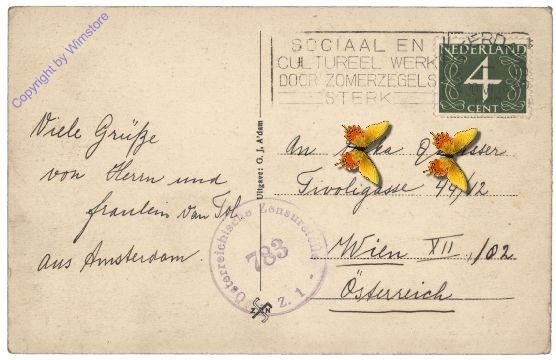 Copyright by Wimstore
SOCIAAL EN
CULTUREEL WERK
DOOR ZOMERZEGELS
STERK
NEDERLAND
4
CENT
Viele Grüße
von Herrn und
fraulein Van Tol
aus Amsterdam.
Uitgave: G. J. A'dam
An
Tivoligasse 44/12
Wien XII./82
Österreich
Österreichische Zensurstelle
783
Z. 1